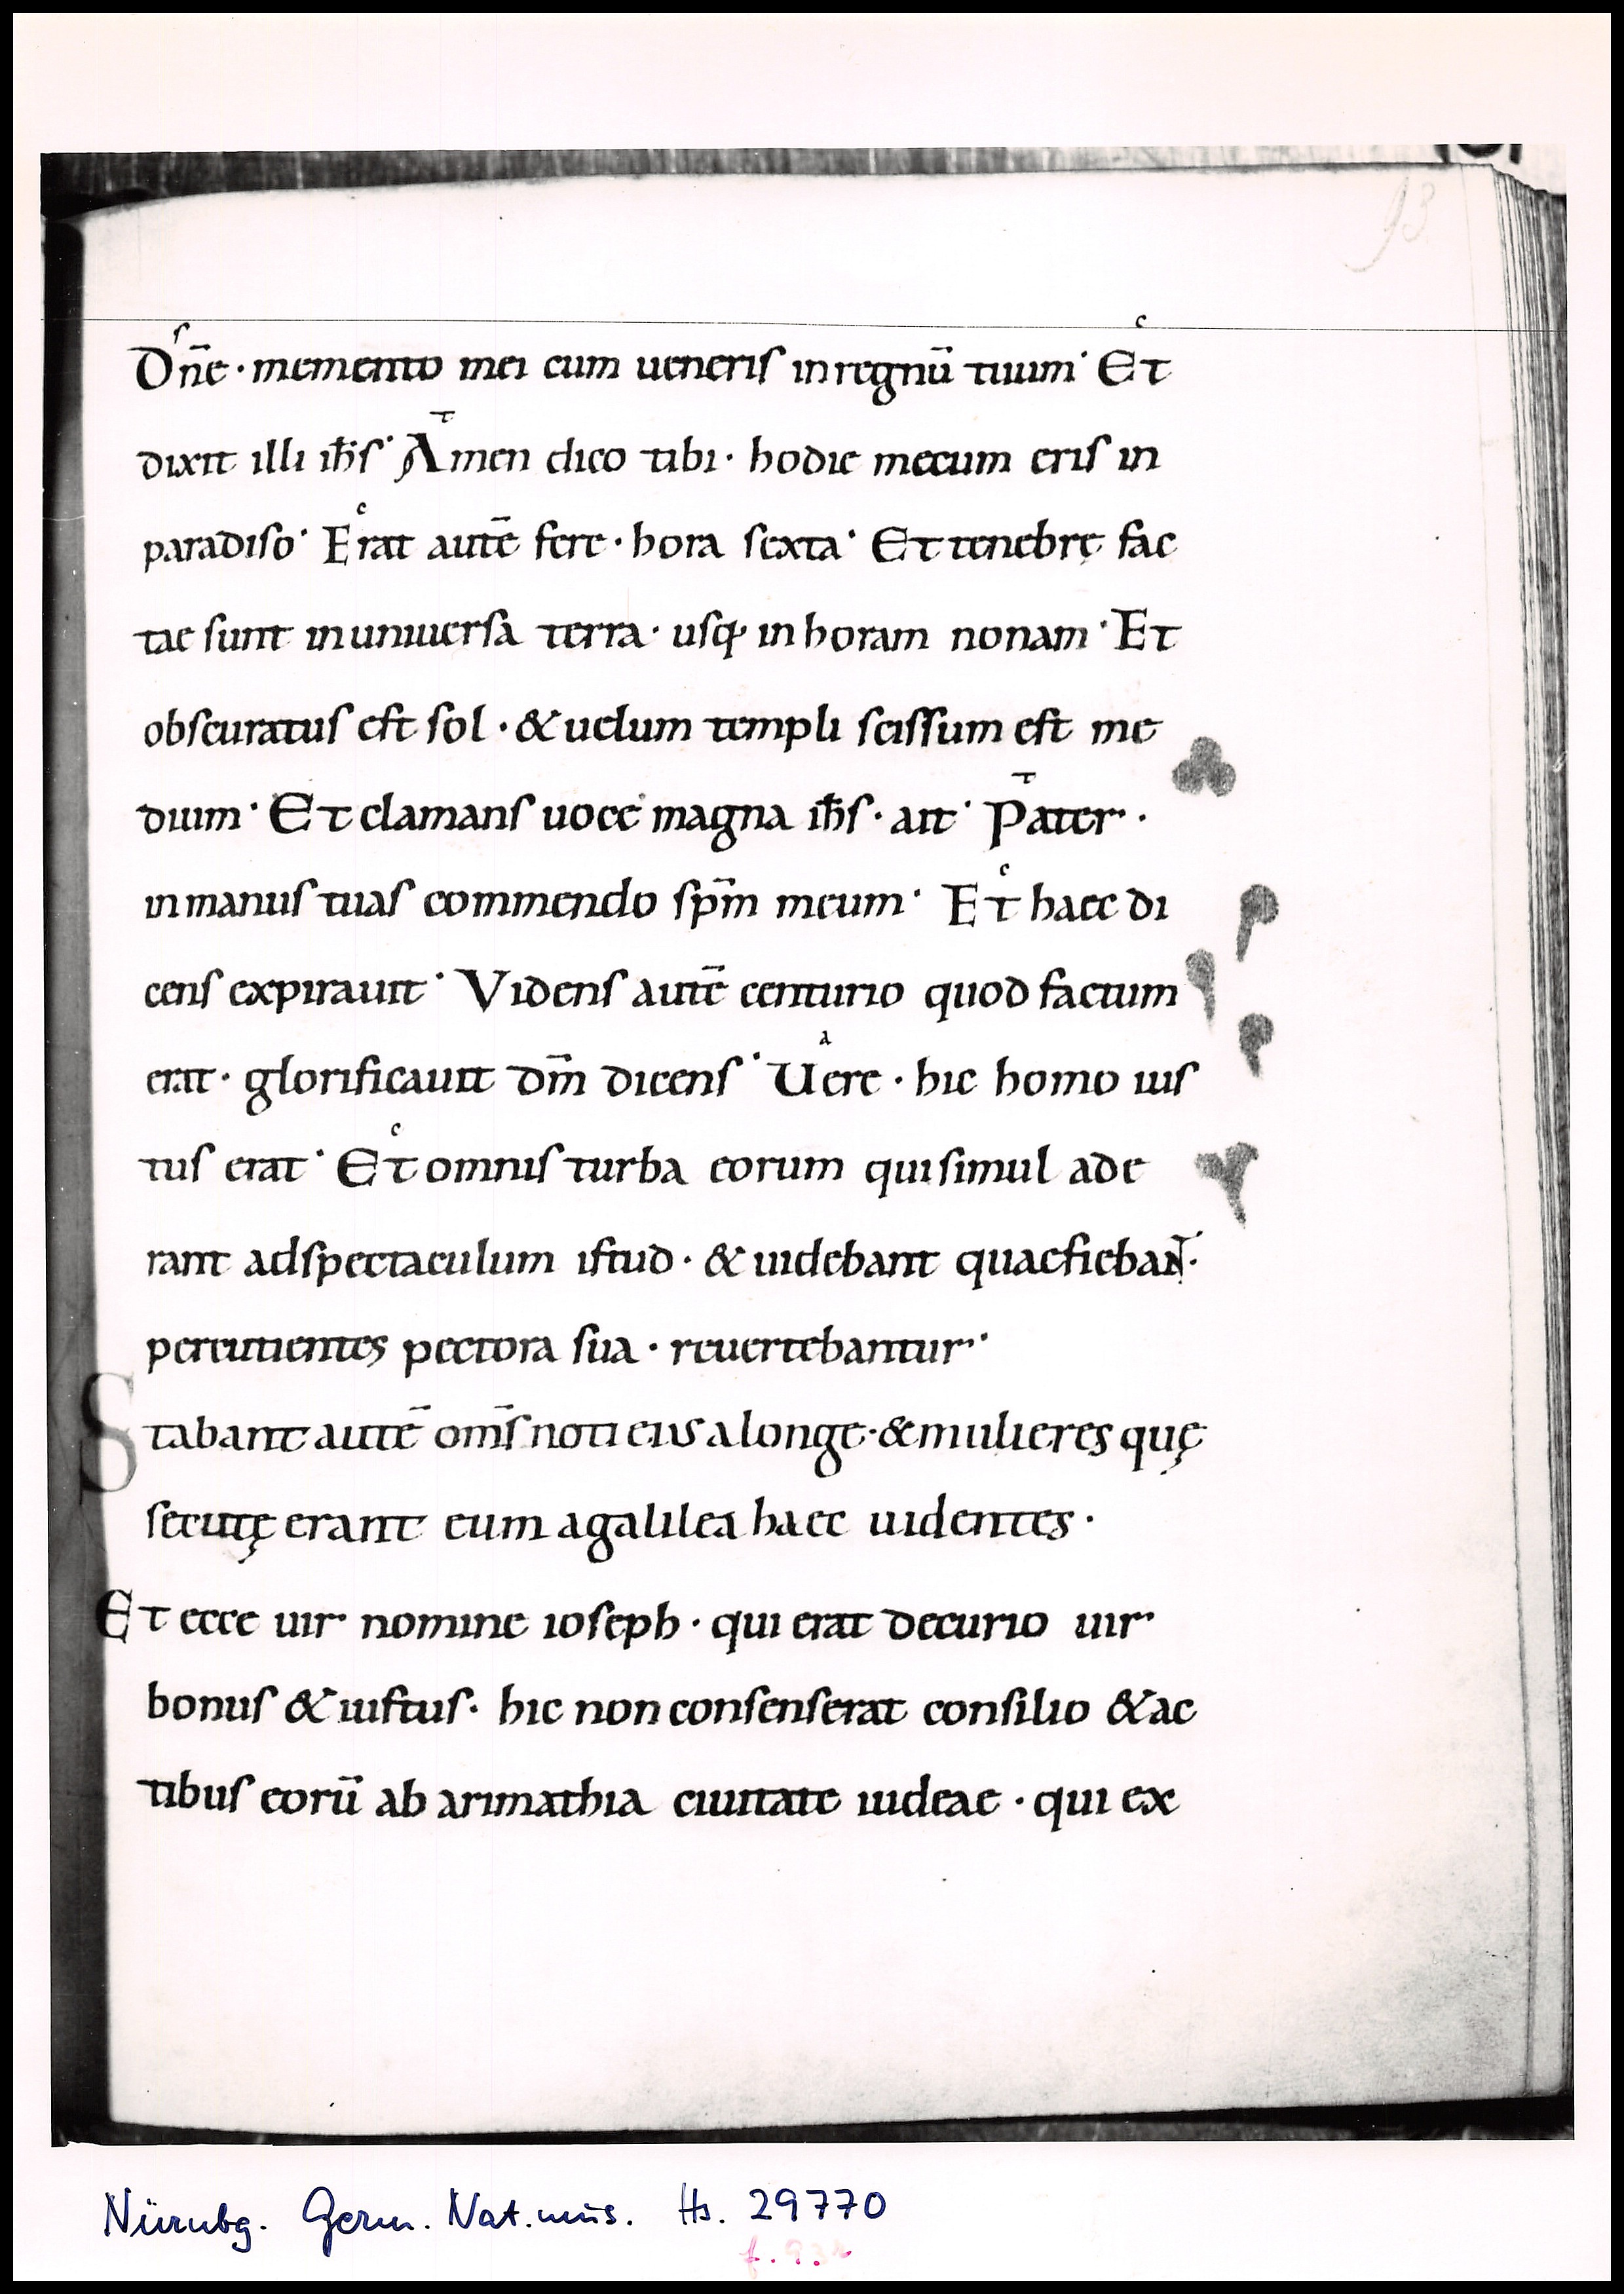 93
s c
Dn̄e · memento mei cum ueneris in regnū tuum · Et
t
dixit illi ih̄s · Amen dico tibi · hodie mecum eris in
c
paradiso · Erat autē fere · hora sexta · Et tenebrę fac
tae sunt in uniuersa terra · usq; in horam nonam · Et
obscuratus est sol · & uelum templi scissum est me
t
dium · Et clamans uoce magna ih̄s · ait · Pater ·
c
in manus tuas commendo sp̄m meum · Et haec di
cens expirauit · Videns autē centurio quod factum
a
erat · glorificauit dm̄ dicens · Uere · hic homo ius
c
tus erat · Et omnis turba eorum qui simul ade
rant ad spectaculum istud · & uidebant quae fiebant ·
percutientes pectora sua · reuertebantur ·
Stabant autē om̄s noti eius a longe · & mulieres quę
secutę erant eum a galilea haec uidentes ·
Et ecce uir nomine ioseph · qui erat decurio uir
bonus & iustus · hic non consenserat consilio & ac
tibus eorū ab arimathia ciuitate iudeae · qui ex
Nürnbg. Germ. Nat.mus. Hs. 29770
f. 93r